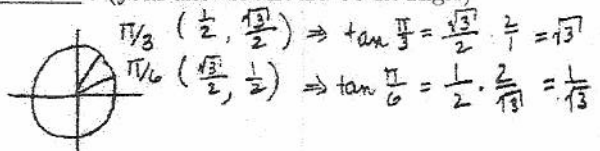 π/3 (1/2, √3/2) ⇒ tan π/3 = √3/2 · 2/1 = √3
π/6 (√3/2, 1/2) ⇒ tan π/6 = 1/2 · 2/√3 = 1/√3